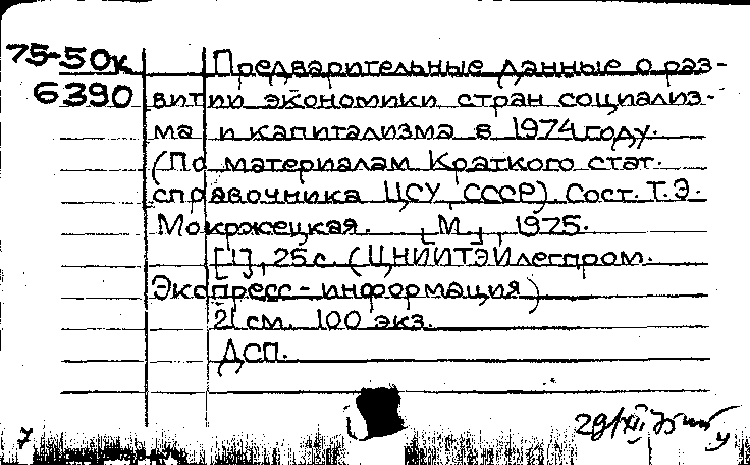 75-50к
6390
Предварительные данные о раз-
витии экономики стран социализ-
ма и капитализма в 1974 году.
(По материалам Краткого стат.
справочника ЦСУ СССР). Сост. Т.Э.
Мокржецкая. [М.], 1975.
[1], 25 с. (ЦНИИТЭИлегпром.
Экспресс-информация)
21 см. 100 экз.
ДСП.
29/XII 75
7